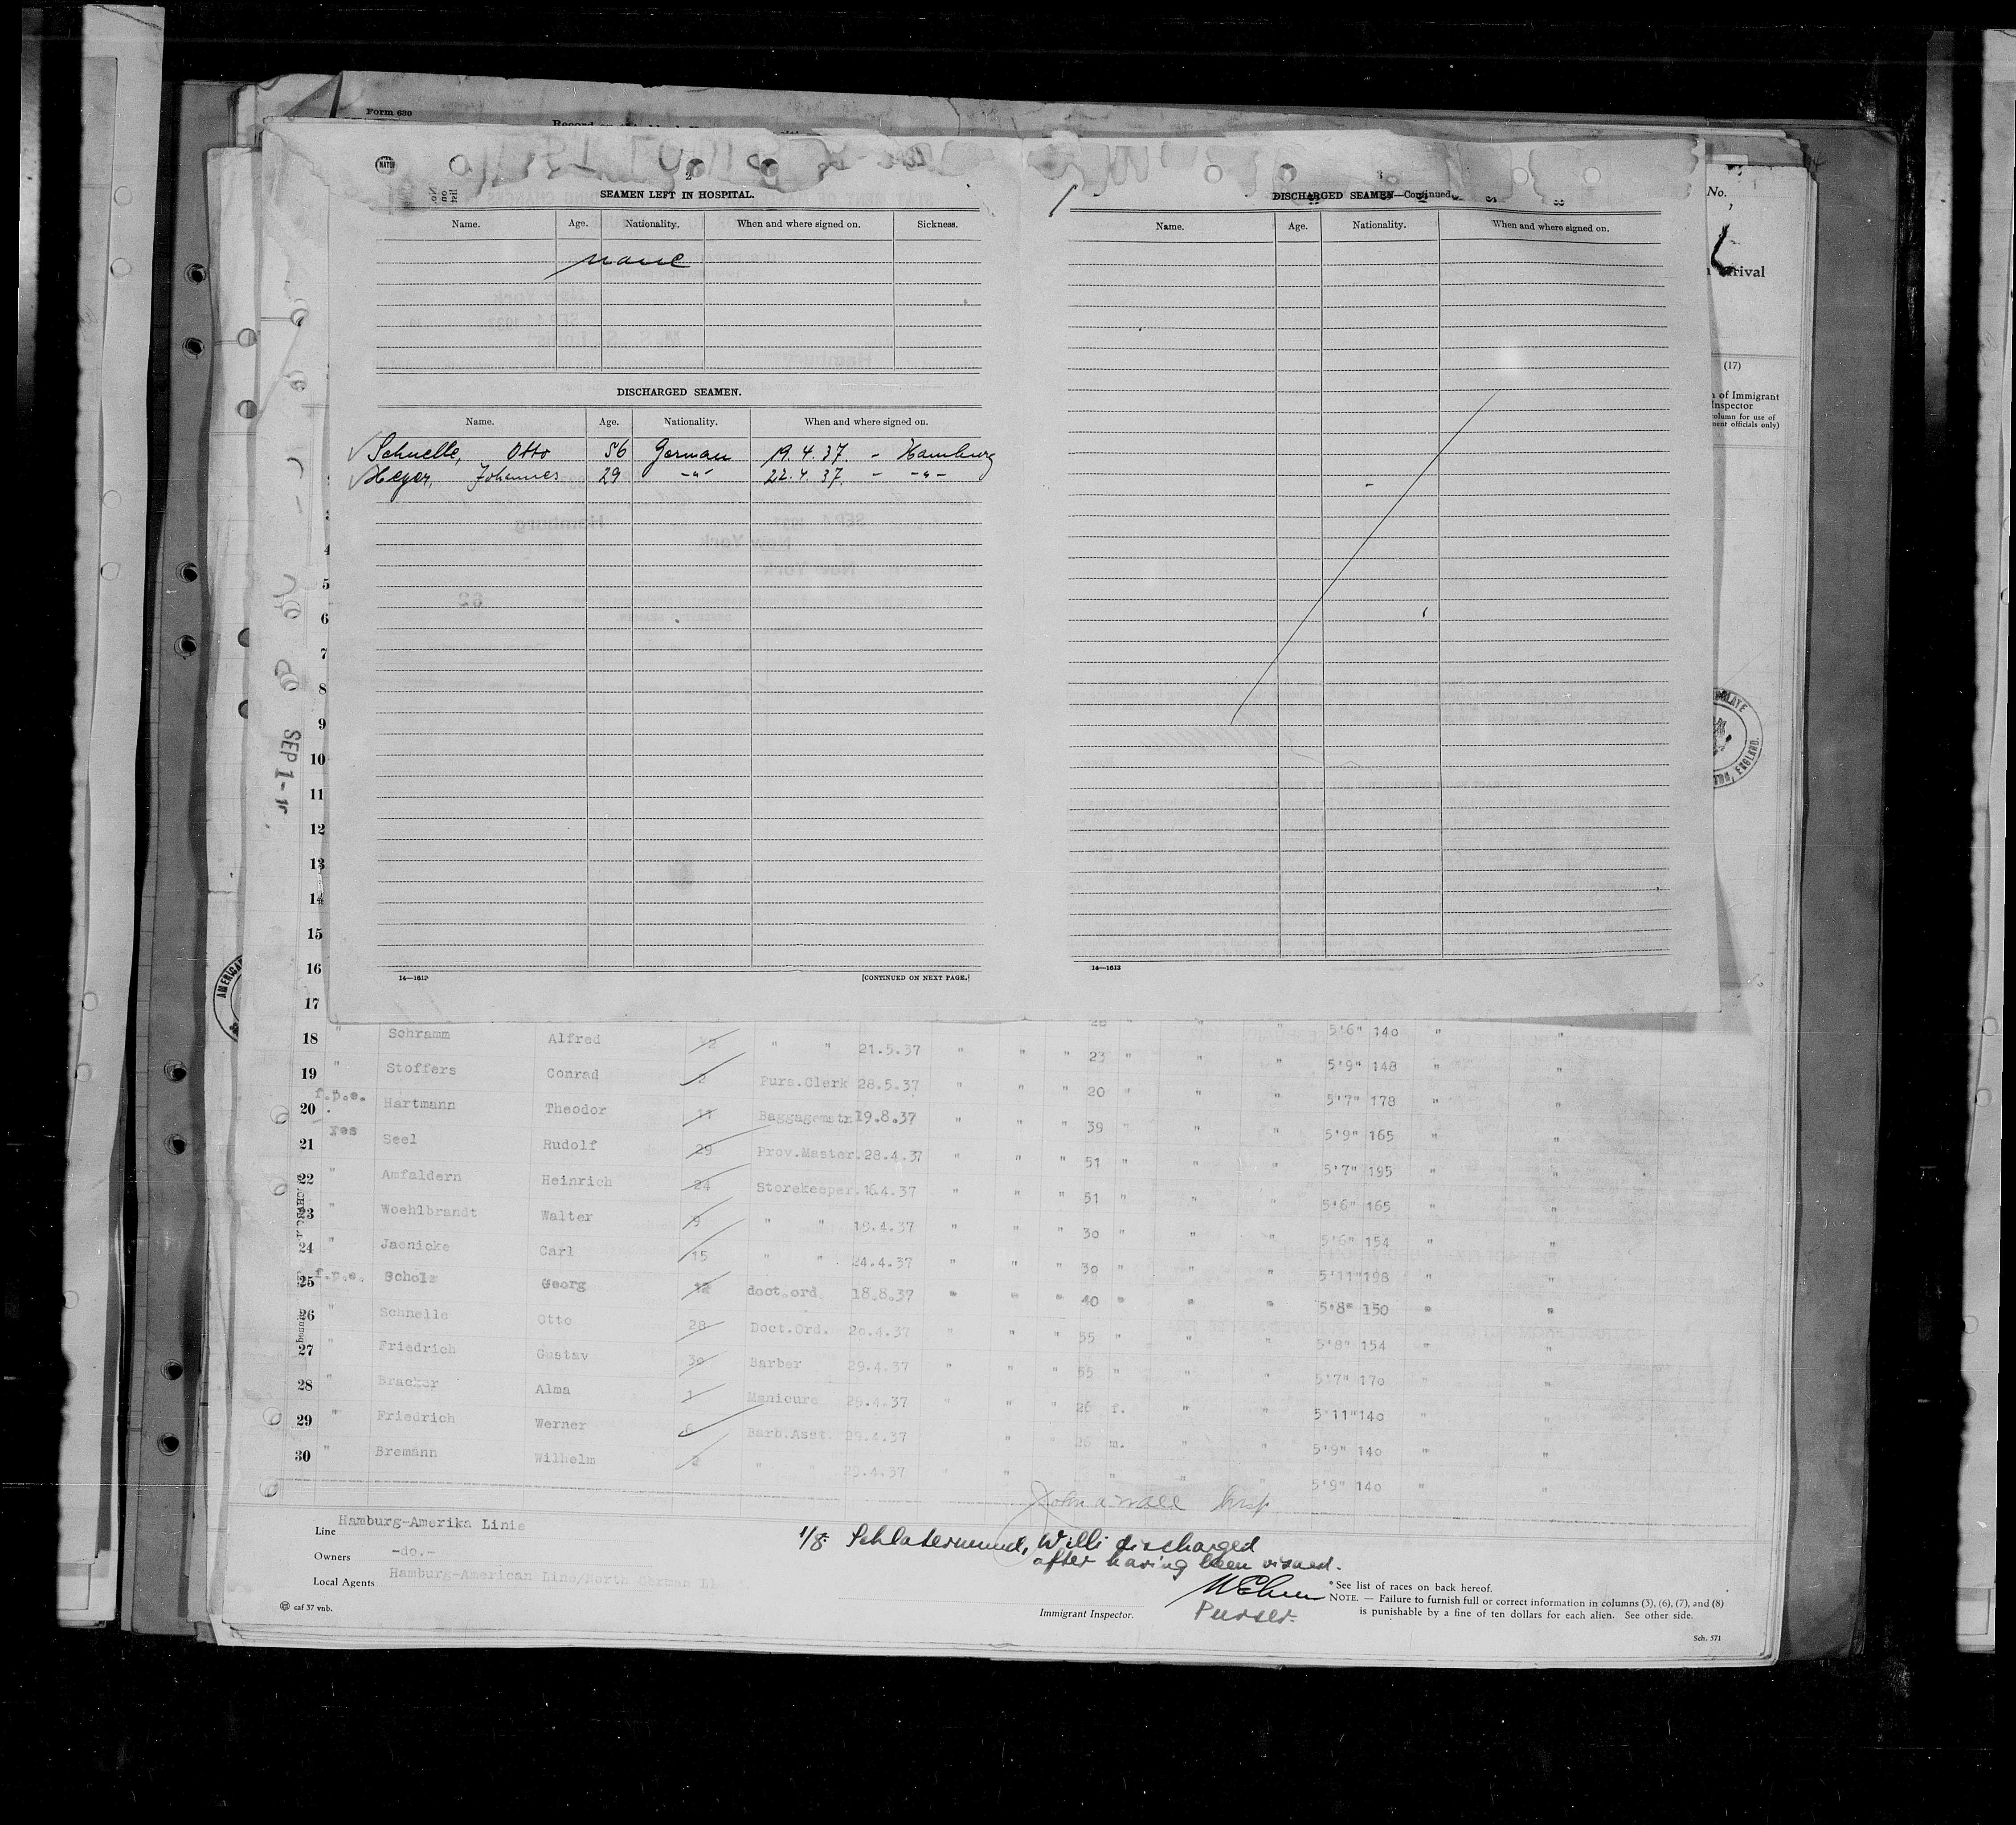 Form 630
2
SEAMEN LEFT IN HOSPITAL.
Name. Age. Nationality. When and where signed on. Sickness.
none
DISCHARGED SEAMEN.
Name. Age. Nationality. When and where signed on.
Schnelle, Otto 56 German 19.4.37 - Hamburg
Heyer, Johannes 29 -"- 22.4.37. - -"-
14—1613
[CONTINUED ON NEXT PAGE.]
3
DISCHARGED SEAMEN—Continued.
Name. Age. Nationality. When and where signed on.
14—1613
No.
rival
(17)
of Immigrant
Inspector
column for use of
ment officials only)
ENGLAND.
AMERICAN
SEP 1-
5
6
7
8
9
10
11
12
13
14
15
16
17
18 " Schramm Alfred " " 21.5.37 " " " 23 " " " 5'6" 140 " "
19 " Stoffers Conrad 2 Purs.Clerk 28.5.37 " " " 20 " " " 5'9" 148 " "
20 f.p.e. Hartmann Theodor 17 Baggagemstr 19.8.37 " " " 39 " " " 5'7" 178 " "
21 Yes Seel Rudolf 29 Prov.Master. 28.4.37 " " " 51 " " " 5'9" 165 " "
22 " Amfaldern Heinrich 24 Storekeeper. 16.4.37 " " " 51 " " " 5'7" 195 " "
23 " Woehlbrandt Walter 9 " " 19.4.37 " " " 30 " " " 5'6" 165 " "
24 " Jaenicke Carl 15 " " 24.4.37 " " " 30 " " " 5'6" 154 " "
25 f.p.e. Scholz Georg 12 doct.ord. 18.8.37 " " " 40 " " " 5'11" 198 " "
26 " Schnelle Otto 28 Doct.Ord. 20.4.37 " " " 55 " " " 5'8" 150 " "
27 " Friedrich Gustav 30 Barber 29.4.37 " " " 55 " " " 5'8" 154 " "
28 " Bracker Alma 1 Manicure 29.4.37 " " " 26 f. " " 5'7" 170 " "
29 " Friedrich Werner 6 Barb.Asst. 29.4.37 " " 26 m. " " 5'11" 140 " "
30 " Bremann Wilhelm 2 " " 29.4.37 " " " " " 5'9" 140 " "
5'9" 140 " "
Line Hamburg-Amerika Linie
Owners -do.-
Local Agents Hamburg-American Line/North German
caf 37 vnb.
1/8 Schlatermund, Willi discharged
after having been visaed.
Purser.
Immigrant Inspector.
* See list of races on back hereof.
NOTE. — Failure to furnish full or correct information in columns (3), (6), (7), and (8)
is punishable by a fine of ten dollars for each alien. See other side.
Sch. 571